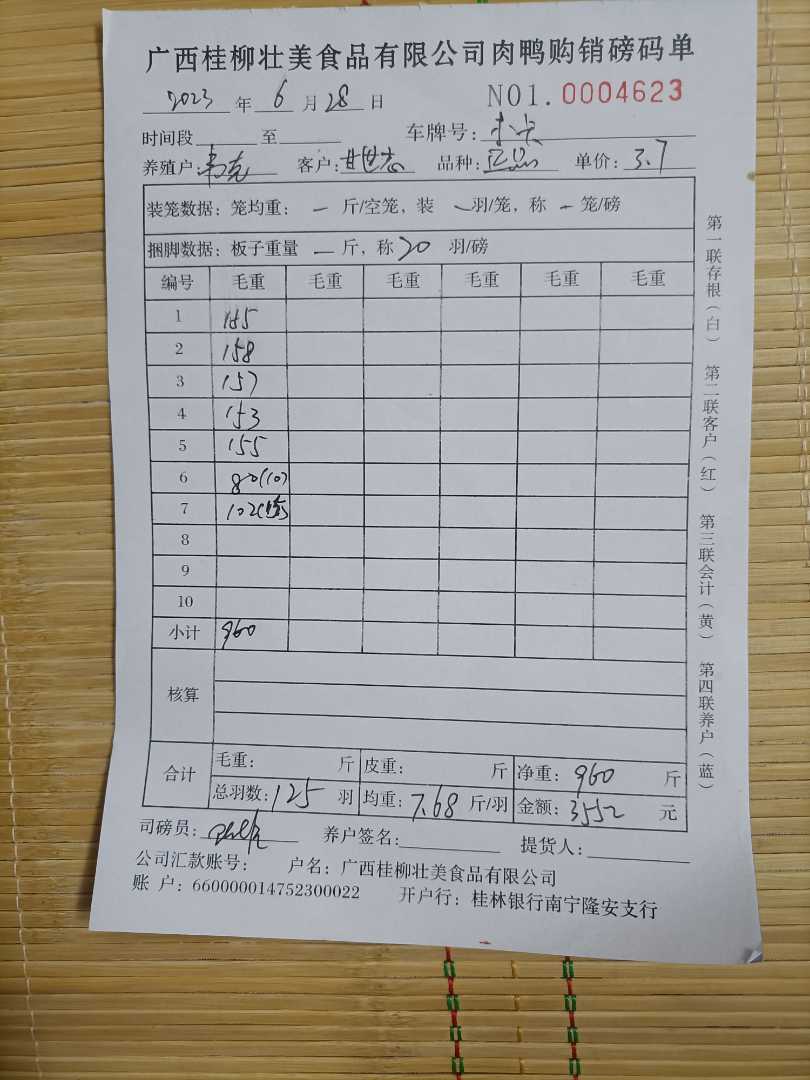 广西桂柳壮美食品有限公司肉鸭购销磅码单
2023 年 6 月 28 日 NO1.0004623
时间段 至 车牌号:
养殖户: 客户: 品种: 单价: 3.7
装笼数据:笼均重: — 斤/空笼,装 — 羽/笼,称 — 笼/磅
捆脚数据:板子重量 — 斤,称 20 羽/磅
编号 毛重 毛重 毛重 毛重 毛重 毛重
1 155
2 158
3 157
4 153
5 155
6 80(10)
7 102
8
9
10
小计 960
核算
合计 毛重: 斤 皮重: 斤 净重: 960 斤
总羽数: 125 羽 均重: 7.68 斤/羽 金额: 3552 元
司磅员: 养户签名: 提货人:
公司汇款账号: 户名:广西桂柳壮美食品有限公司
账 户:660000014752300022 开户行:桂林银行南宁隆安支行
第一联存根(白) 第二联客户(红) 第三联会计(黄) 第四联养户(蓝)